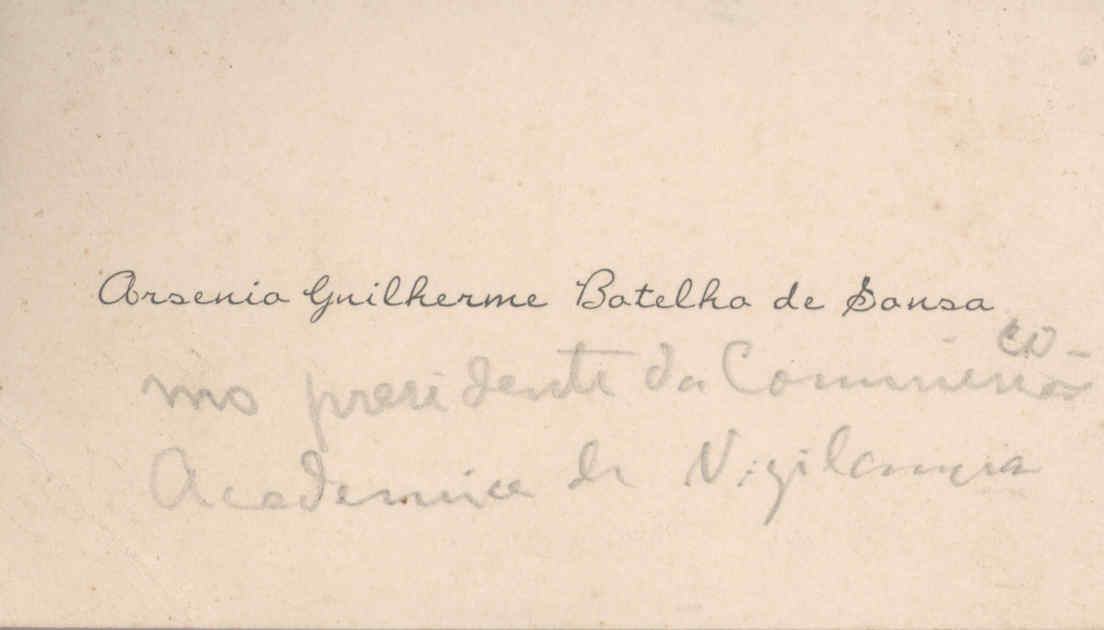 Arsenio Guilherme Botelho de Sousa
co-
mo presidente da Commissão
Academica de Vigilancia